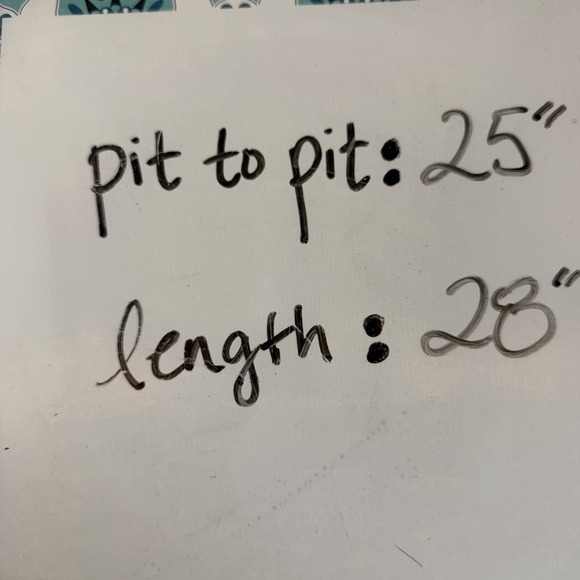 pit to pit: 25"
length: 28"